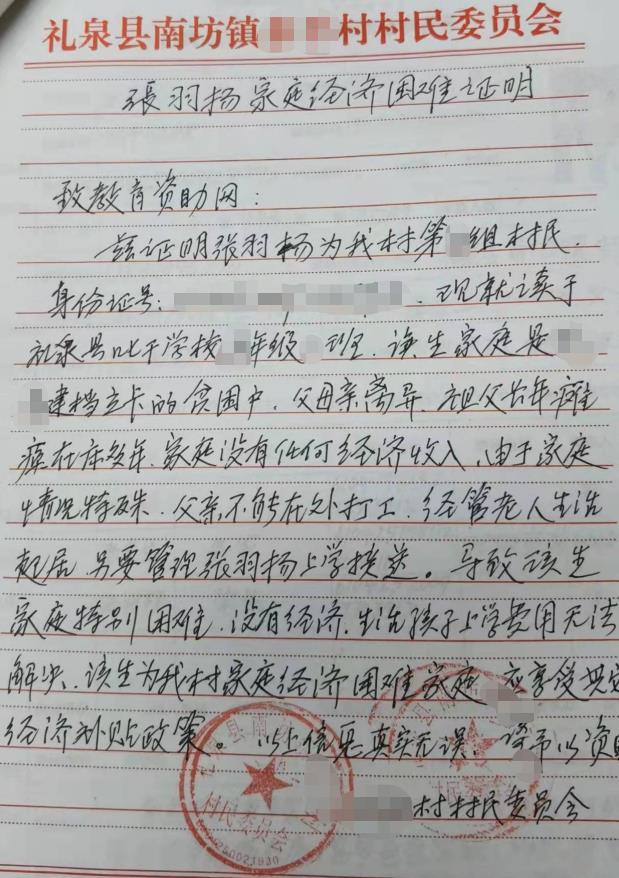 礼泉县南坊镇 村村民委员会
张羽扬家庭经济困难证明
致教育资助网:
兹证明张羽扬为我村第 组村民.
身份证号: . 现就读于
礼泉县叱干学校 年级 班. 该生家庭是
建档立卡的贫困户. 父母亲离异. 祖父长年瘫
痪在床多年. 家庭没有任何经济收入. 由于家庭
情况特殊. 父亲不能在外打工. 经管老人生活
起居 另要管理张羽扬上学接送。导致该生
家庭特别困难. 没有经济. 生活孩子上学费用无法
解决. 该生为我村家庭经济困难家庭 应享受
经济补贴政策。以上信息真实无误. 予以资
村村民委员会
村民委员会